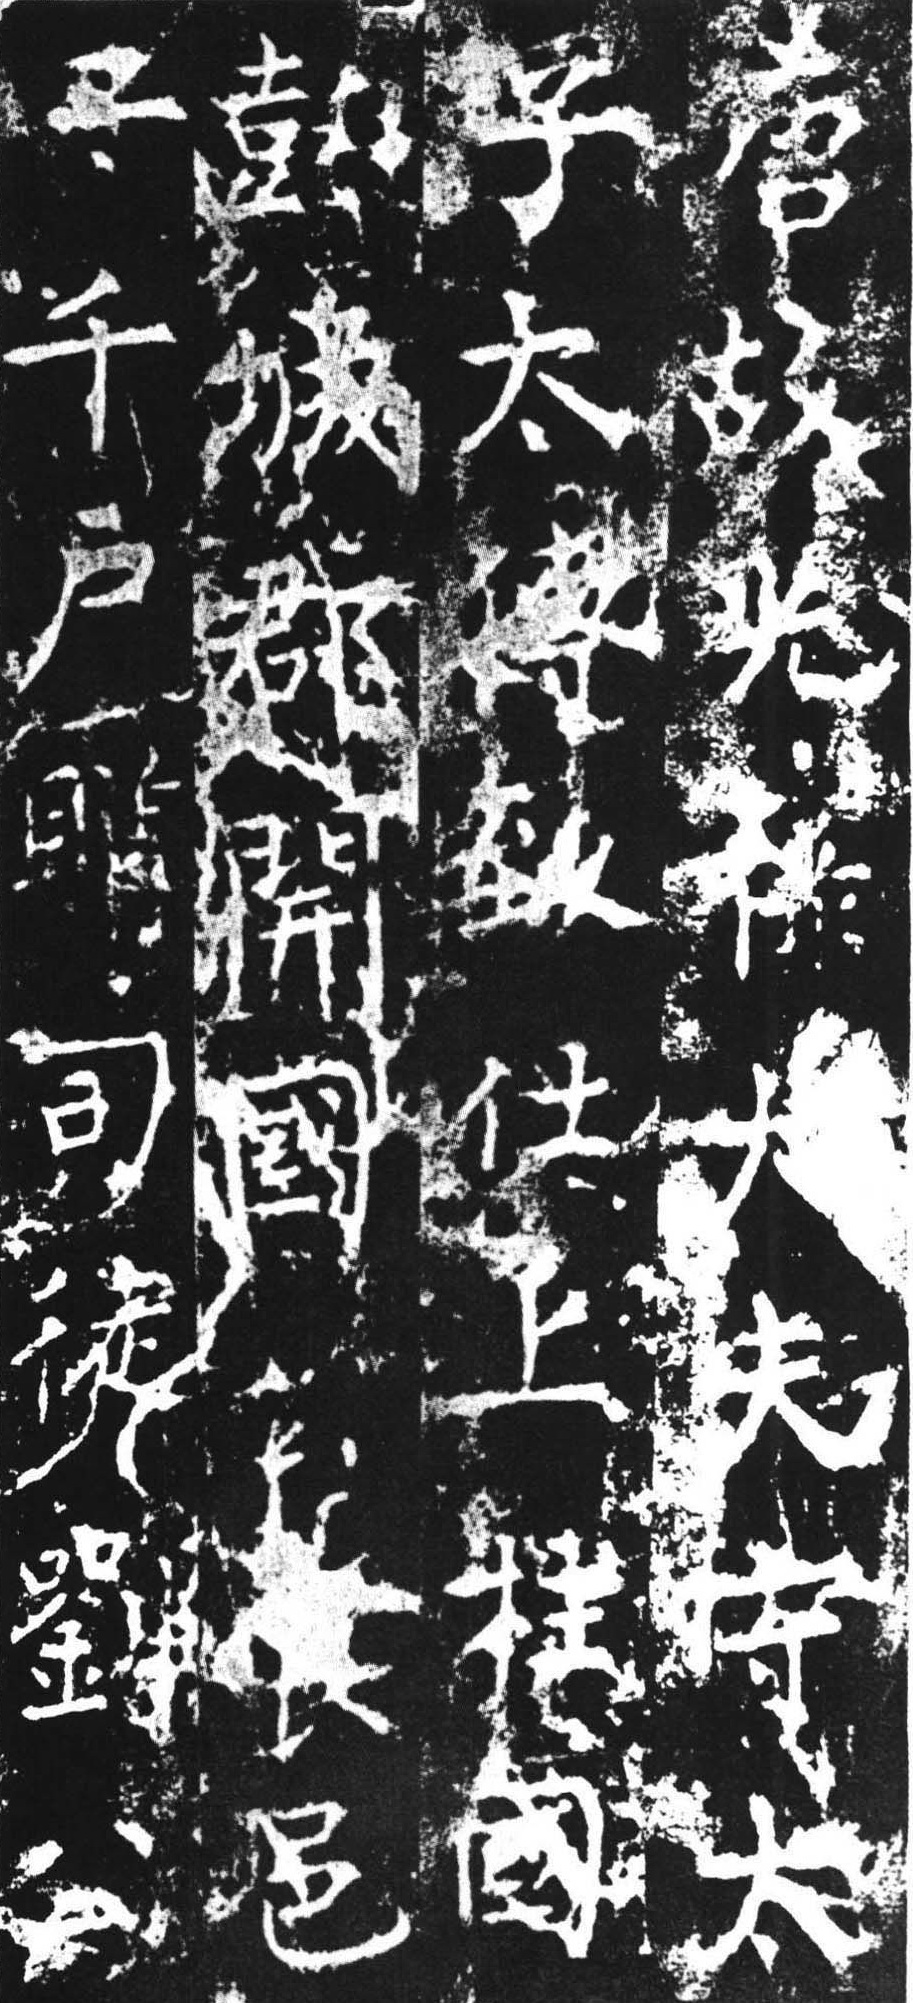 唐故光祿大夫守太
子太傅致仕上柱國
彭城郡開國公食邑
二千戶贈司徒劉公